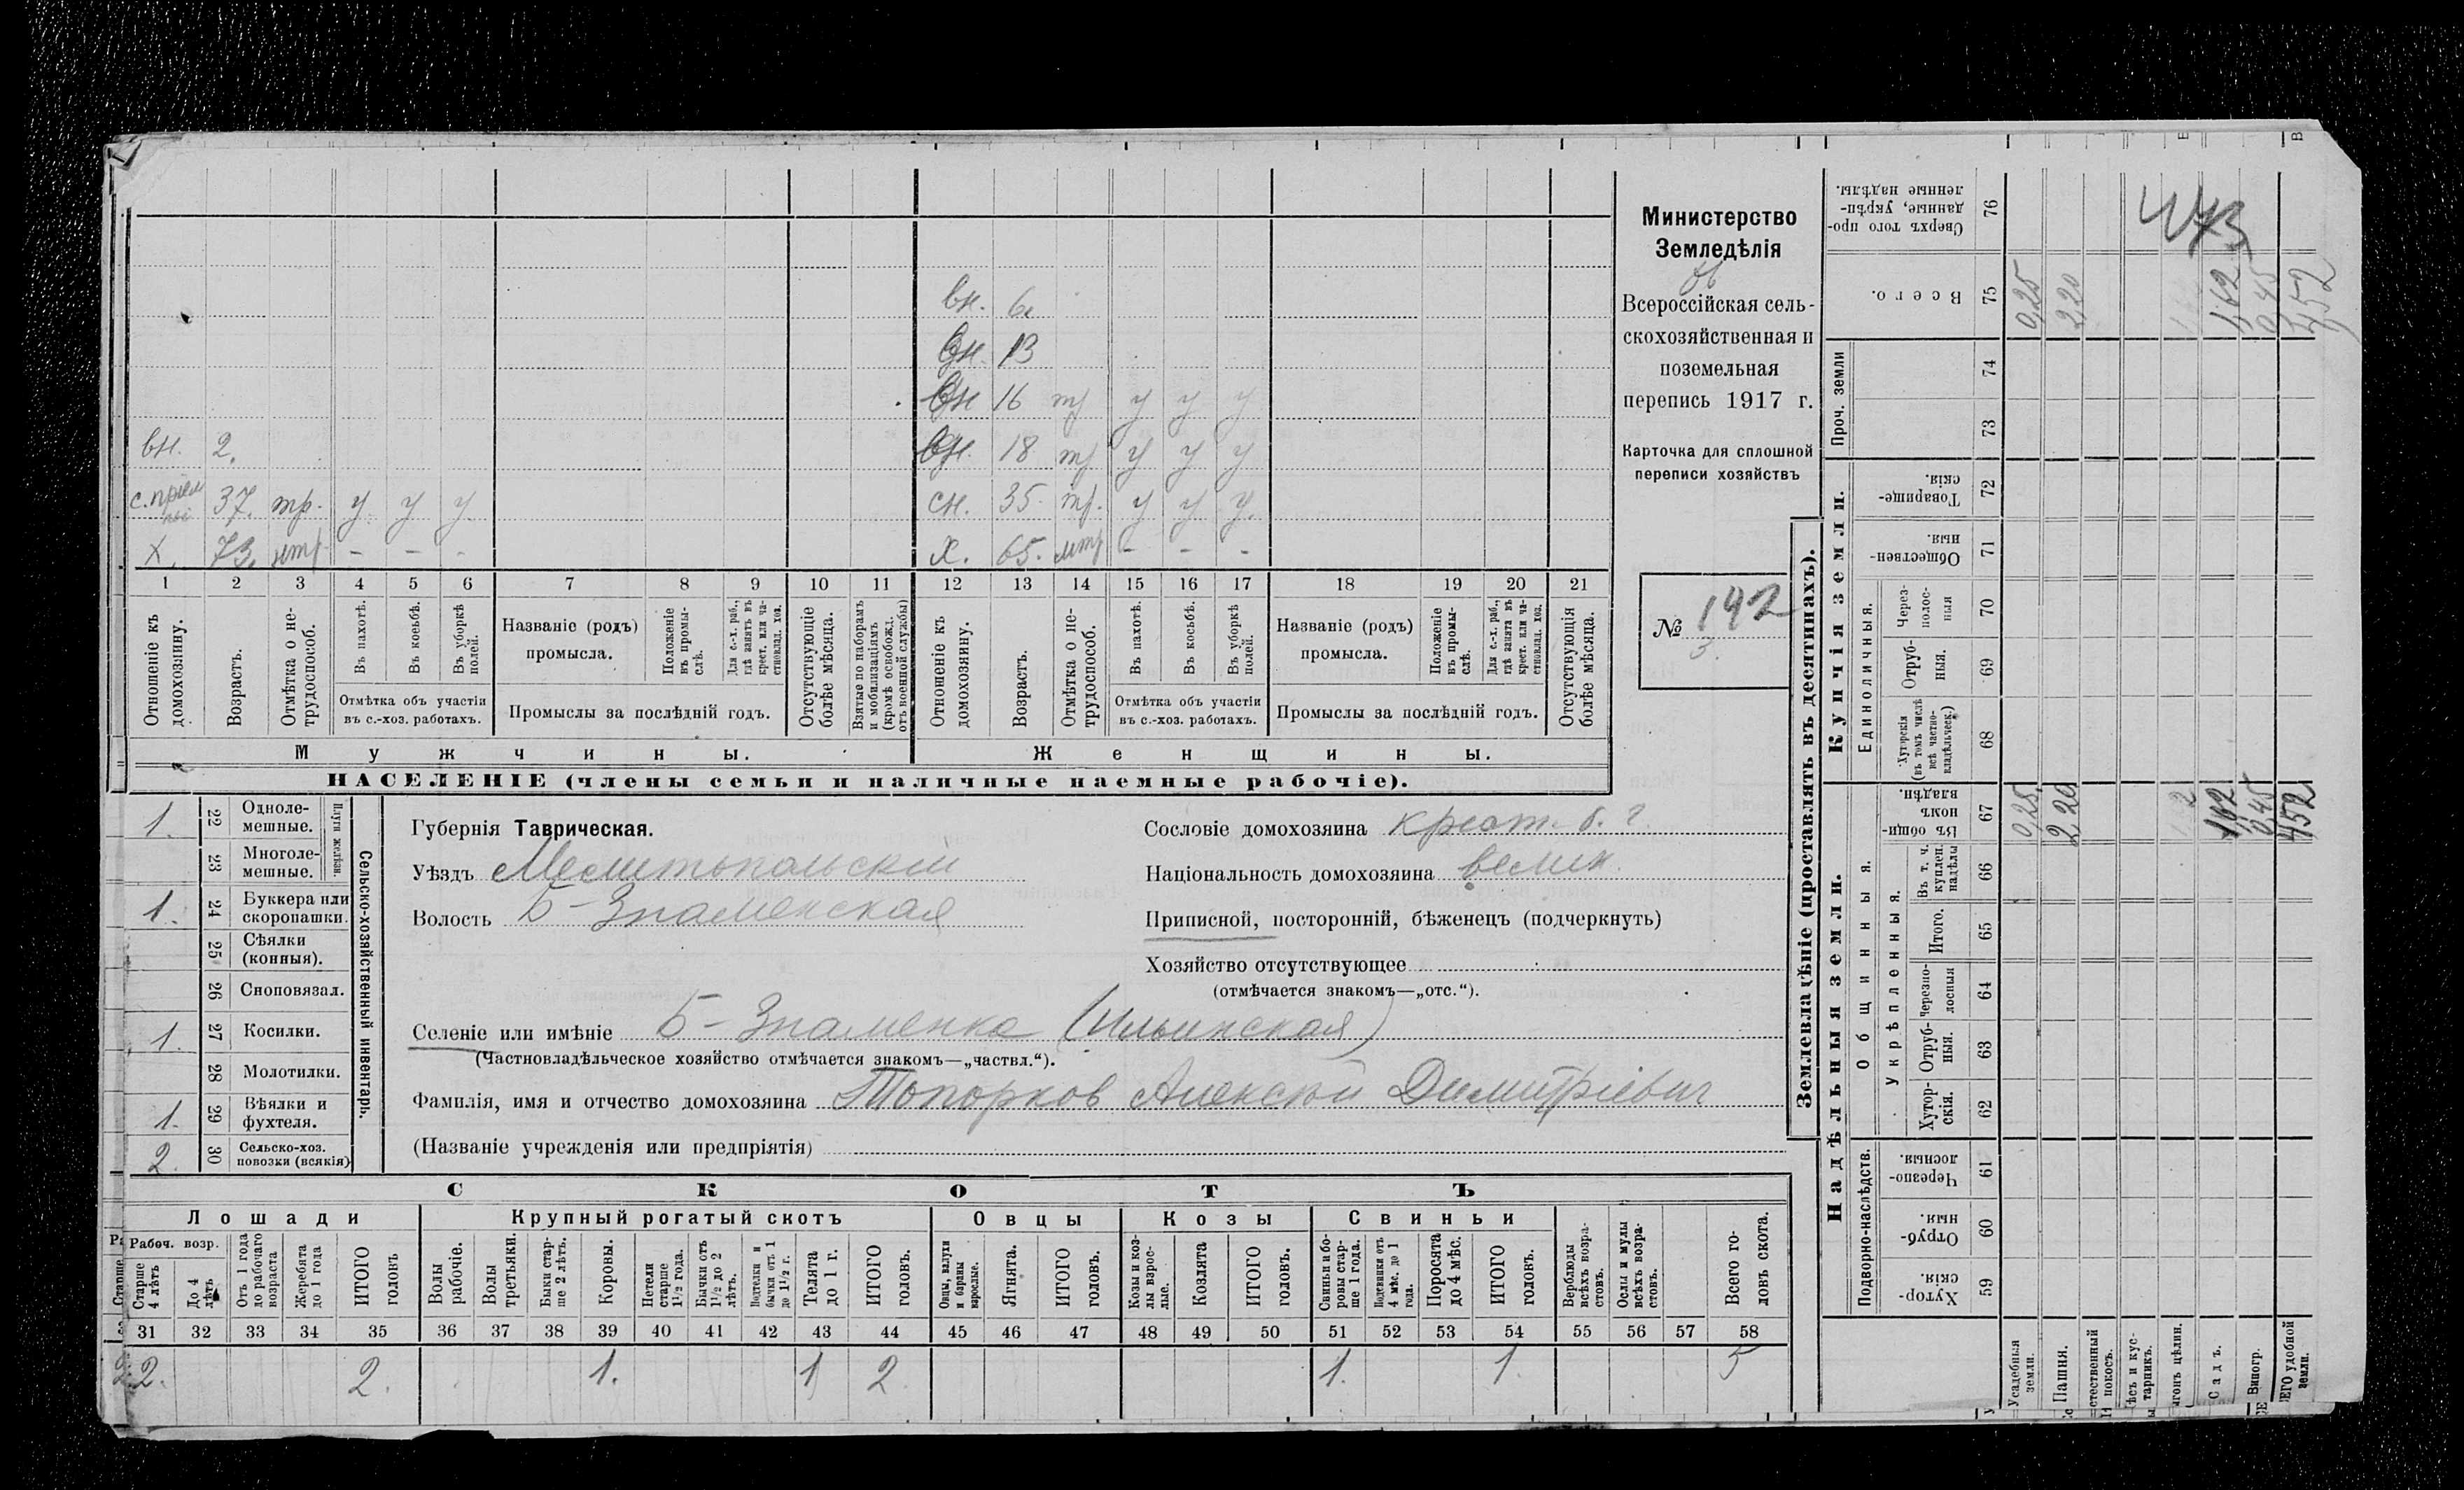 вн. 6.
вн. 13
вн 16 тр у у у
вн. 2.
вн. 18 тр у у у
с. 37. тр. у у у
сн. 35. тр. у у у.
х. 73. нтр - - -
х. 65. нтр - - -
1 2 3 4 5 6 7 8 9 10 11 12 13 14 15 16 17 18 19 20 21
Отношеніе къ домохозяину.
Возрастъ.
Отмѣтка о не-трудоспособ.
Въ пахотѣ.
Въ косьбѣ.
Въ уборкѣ полей.
Отмѣтка объ участіи въ с.-хоз. работахъ.
Названіе (родъ) промысла.
Положеніе въ промы-слѣ.
Для с.-х. раб., гдѣ занятъ въ крест. или ча-стновлад. хоз.
Промыслы за послѣдній годъ.
Отсутствующіе болѣе мѣсяца.
Взятые по наборамъ и мобилизаціямъ (кромѣ освобожд. отъ военной службы)
Отношеніе къ домохозяину.
Возрастъ.
Отмѣтка о не-трудоспособ.
Въ пахотѣ.
Въ косьбѣ.
Въ уборкѣ полей.
Отмѣтка объ участіи въ с.-хоз. работахъ.
Названіе (родъ) промысла.
Положеніе въ промы-слѣ.
Для с.-х. раб., гдѣ занята въ крест. или ча-стновлад. хоз.
Промыслы за послѣдній годъ.
Отсутствующія болѣе мѣсяца.
Мужчины.
Женщины.
НАСЕЛЕНІЕ (члены семьи и наличные наемные рабочіе).
Министерство
Земледѣлія
Всероссійская сель-
скохозяйственная и
поземельная
перепись 1917 г.
Карточка для сплошной
переписи хозяйствъ
№ 142
3.
Сельско-хозяйственный инвентарь.
Плуги желѣзн.
1. 22 Одноле-мешные.
23 Многоле-мешные.
1. 24 Буккера или скоропашки.
25 Сѣялки (конныя).
26 Сноповязал.
1. 27 Косилки.
28 Молотилки.
1. 29 Вѣялки и фухтеля.
2. 30 Сельско-хоз. повозки (всякія)
Губернія Таврическая.
Уѣздъ Мелитопольскій
Волость Б-Знаменская
Сословіе домохозяина крест. б. г.
Національность домохозяина велик.
Приписной, посторонній, бѣженецъ (подчеркнуть)
Хозяйство отсутствующее
(отмѣчается знакомъ—„отс.“).
Селеніе или имѣніе Б-Знаменка (Ильинская)
(Частновладѣльческое хозяйство отмѣчается знакомъ—„частвл.“).
Фамилія, имя и отчество домохозяина Топорков Алексѣй Димитріевич
(Названіе учрежденія или предпріятія)
СКОТЪ
Лошади
Крупный рогатый скотъ
Овцы
Козы
Свиньи
Рабоч. возр.
Старше 4 лѣтъ
До 4 лѣтъ
Отъ 1 года до рабочаго возраста
Жеребята до 1 года
ИТОГО головъ
Волы рабочіе.
Волы третьяки.
Быки стар-ше 2 лѣтъ.
Коровы.
Нетели старше 1½ года.
Бычки отъ 1½ до 2 лѣтъ.
Подтелки и бычки отъ 1 до 1½ г.
Телята до 1 г.
ИТОГО головъ.
Овцы, валухи и бараны взрослые.
Ягнята.
ИТОГО головъ.
Козы и коз-лы взрос-лые.
Козлята
ИТОГО головъ.
Свиньи и бо-ровы стар-ше 1 года.
Подсвинки отъ 4 мѣс. до 1 года.
Поросята до 4 мѣс.
ИТОГО головъ.
Верблюды всѣхъ возра-стовъ.
Ослы и мулы всѣхъ возра-стовъ.
Всего го-ловъ скота.
31 32 33 34 35 36 37 38 39 40 41 42 43 44 45 46 47 48 49 50 51 52 53 54 55 56 57 58
2. 2. 1. 1 2 1. 1. 5
Землевладѣніе (проставлять въ десятинахъ).
Надѣльныя земли.
Купчія земли.
Проч. земли
Подворно-наслѣдств.
Общинныя.
Укрѣпленныя.
Единоличныя.
Сверхъ того про-данные, укрѣп-ленные надѣлы. 76
Всего. 75
74
73
Товарище-скія. 72
Обществен-ныя. 71
Через-полос-ныя 70
Отруб-ныя. 69
Хуторскія (въ томъ числѣ всѣ частно-владѣльческ.) 68
Въ общи-номъ владѣн. 67
Въ т. ч. куплен. надѣлы 66
Итого. 65
Черезпо-лосныя 64
Отруб-ныя. 63
Хутор-скія. 62
Черезпо-лосныя. 61
Отруб-ныя. 60
Хутор-скія. 59
Усадебныя земли.
Пашня.
Садъ.
Виногр.
0,25 2,20 1,62 0,45 4,52
0,25 2,20 1,62 0,45 4,52